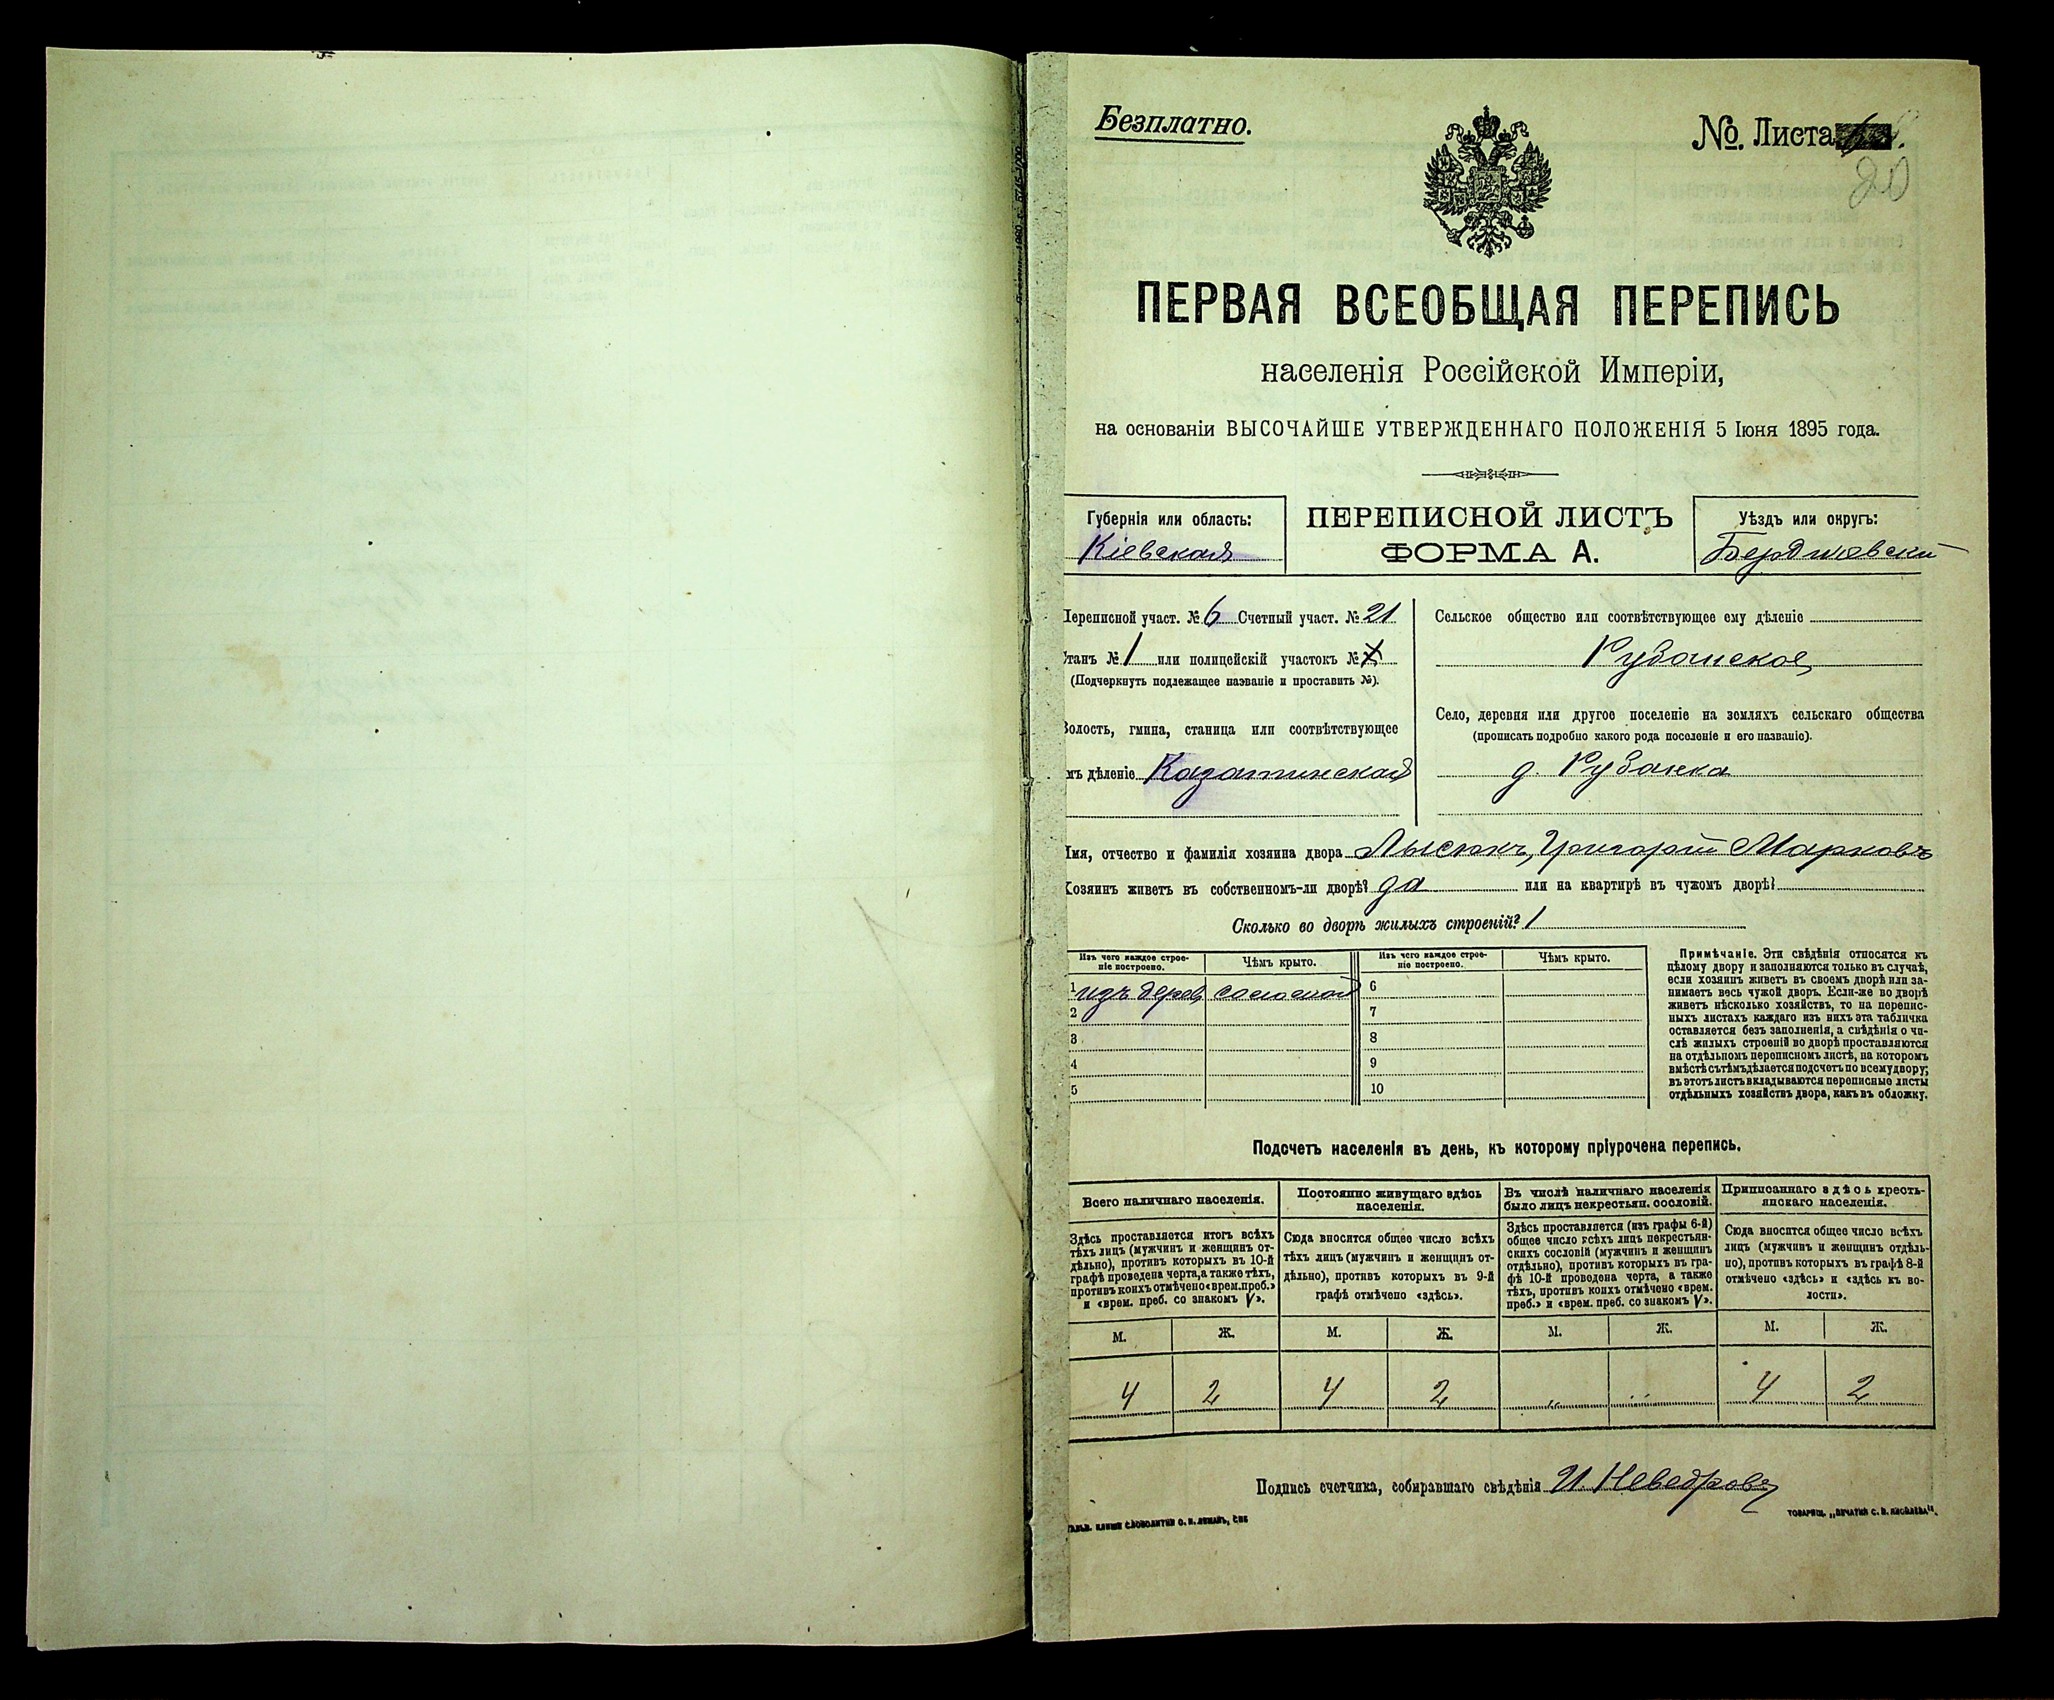 Безплатно.
№. Листа
20
ПЕРВАЯ ВСЕОБЩАЯ ПЕРЕПИСЬ
населенія Россійской Имперіи,
на основаніи ВЫСОЧАЙШЕ УТВЕРЖДЕННАГО ПОЛОЖЕНІЯ 5 Іюня 1895 года.
Губернія или область:
Кіевская
ПЕРЕПИСНОЙ ЛИСТЪ
ФОРМА А.
Уѣздъ или округъ:
Бердичевскій
Переписной участ. № 6 Счетный участ. № 21
Станъ № 1 или полицейскій участокъ № X
(Подчеркнуть подлежащее названіе и проставить №).
Волость, гмина, станица или соотвѣтствующее
имъ дѣленіе Казатинская
Сельское общество или соотвѣтствующее ему дѣленіе
Рубанское
Село, деревня или другое поселеніе на земляхъ сельскаго общества
(прописать подробно какого рода поселеніе и его названіе).
д. Рубанка
Имя, отчество и фамилія хозяина двора Лысюкъ, Григорій Марковъ
Хозяин живетъ въ собственномъ-ли дворѣ? да или на квартирѣ въ чужомъ дворѣ?
Сколько во дворѣ жилыхъ строеній? 1
Изъ чего каждое строе-
ніе построено.
Чѣмъ крыто.
Изъ чего каждое строе-
ніе построено.
Чѣмъ крыто.
1 изъ дерев. соломой 6
2 7
3 8
4 9
5 10
Примѣчаніе. Эти свѣдѣнія относятся къ
цѣлому двору и заполняются только въ случаѣ,
если хозяинъ живетъ въ своемъ дворѣ или за-
нимаетъ весь чужой дворъ. Если-же во дворѣ
живетъ нѣсколько хозяйствъ, то на перепис-
ныхъ листахъ каждаго изъ нихъ эта табличка
оставляется безъ заполненія, а свѣдѣнія о чи-
слѣ жилыхъ строеній во дворѣ проставляются
на отдѣльномъ переписномъ листѣ, на которомъ
вмѣстѣ съ тѣмъ дѣлается подсчетъ по всему двору;
въ этотъ листъ вкладываются переписные листы
отдѣльныхъ хозяйствъ двора, какъ въ обложку.
Подсчетъ населенія въ день, къ которому пріурочена перепись.
Всего наличнаго населенія.
Здѣсь проставляется итогъ всѣхъ
тѣхъ лицъ (мужчинъ и женщинъ от-
дѣльно), противъ которыхъ въ 10-й
графѣ проведена черта, а также тѣхъ,
противъ коихъ отмѣчено «врем. преб.»
и «врем. преб. со знакомъ V».
Постоянно живущаго здѣсь
населенія.
Сюда вносится общее число всѣхъ
тѣхъ лицъ (мужчинъ и женщинъ от-
дѣльно), противъ которыхъ въ 9-й
графѣ отмѣчено «здѣсь».
Въ числѣ наличнаго населенія
было лицъ некрестьян. сословій.
Здѣсь проставляется (изъ графы 6-й)
общее число всѣхъ лицъ некрестьян-
скихъ сословій (мужчинъ и женщинъ
отдѣльно), противъ которыхъ въ гра-
фѣ 10-й проведена черта, а также
тѣхъ, противъ коихъ отмѣчено «врем.
преб.» и «врем. преб. со знакомъ V».
Приписаннаго здѣсь кресть-
янскаго населенія.
Сюда вносится общее число всѣхъ
лицъ (мужчинъ и женщинъ отдѣль-
но), противъ которыхъ въ графѣ 8-й
отмѣчено «здѣсь» и «здѣсь къ во-
лости».
М. Ж. М. Ж. М. Ж. М. Ж.
4 2 4 2 „ „ 4 2
Подпись счетчика, собиравшаго свѣдѣнія И. Неведровъ
СЛОВОЛИТНИ О. И. ЛЕМАНЪ, СПБ
ТОВАРИЩ. „ПЕЧАТНИ С. П. ЯКОВЛЕВА“.